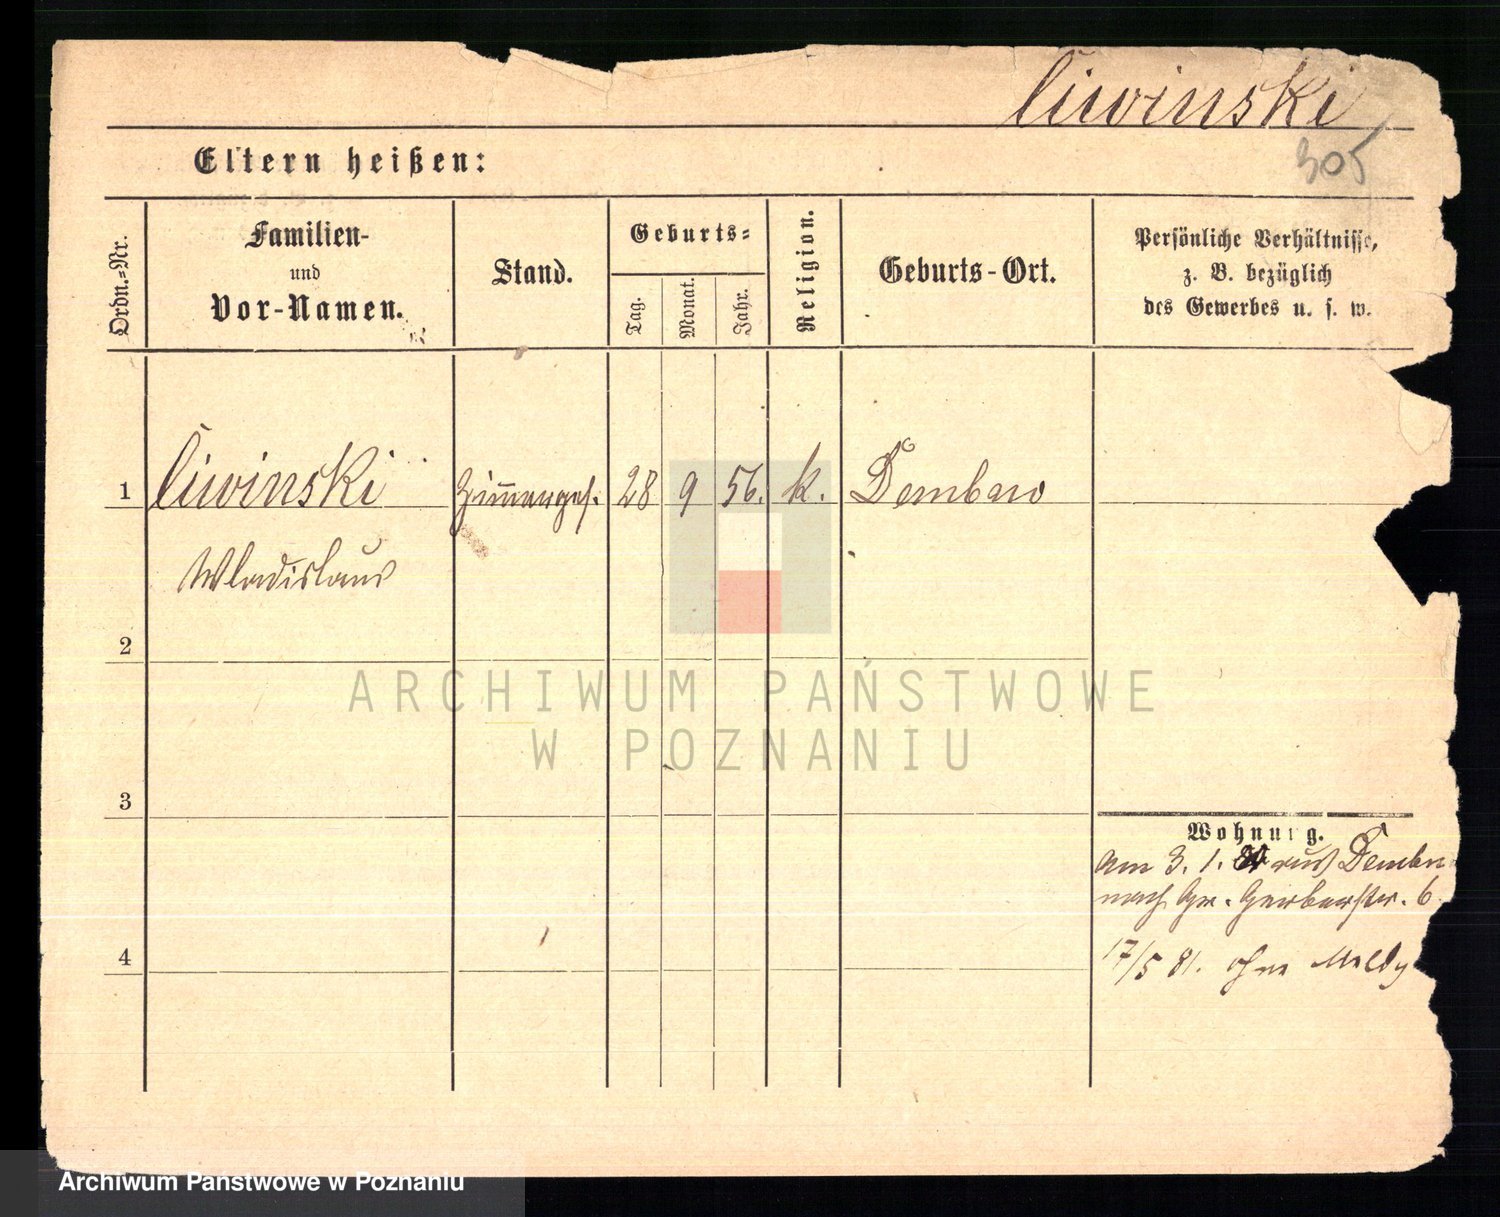 Liwinski
305
Eltern heißen:
Ordn.-Nr.
Familien-
und
Vor-Namen.
Stand.
Geburts-
Tag.
Monat.
Jahr.
Religion.
Geburts-Ort.
Persönliche Verhältnisse,
z. B. bezüglich
des Gewerbes u. s. w.
1 Liwinski Zimmerges. 28 9 56. k. Dembno
Wladislaus
2
3
4
Wohnung.
am 3. 1. aus Dembn
nach Gr. Gerberstr. 6.
17/5 81. ohne Meldg
ARCHIWUM PAŃSTWOWE
W POZNANIU
Archiwum Państwowe w Poznaniu